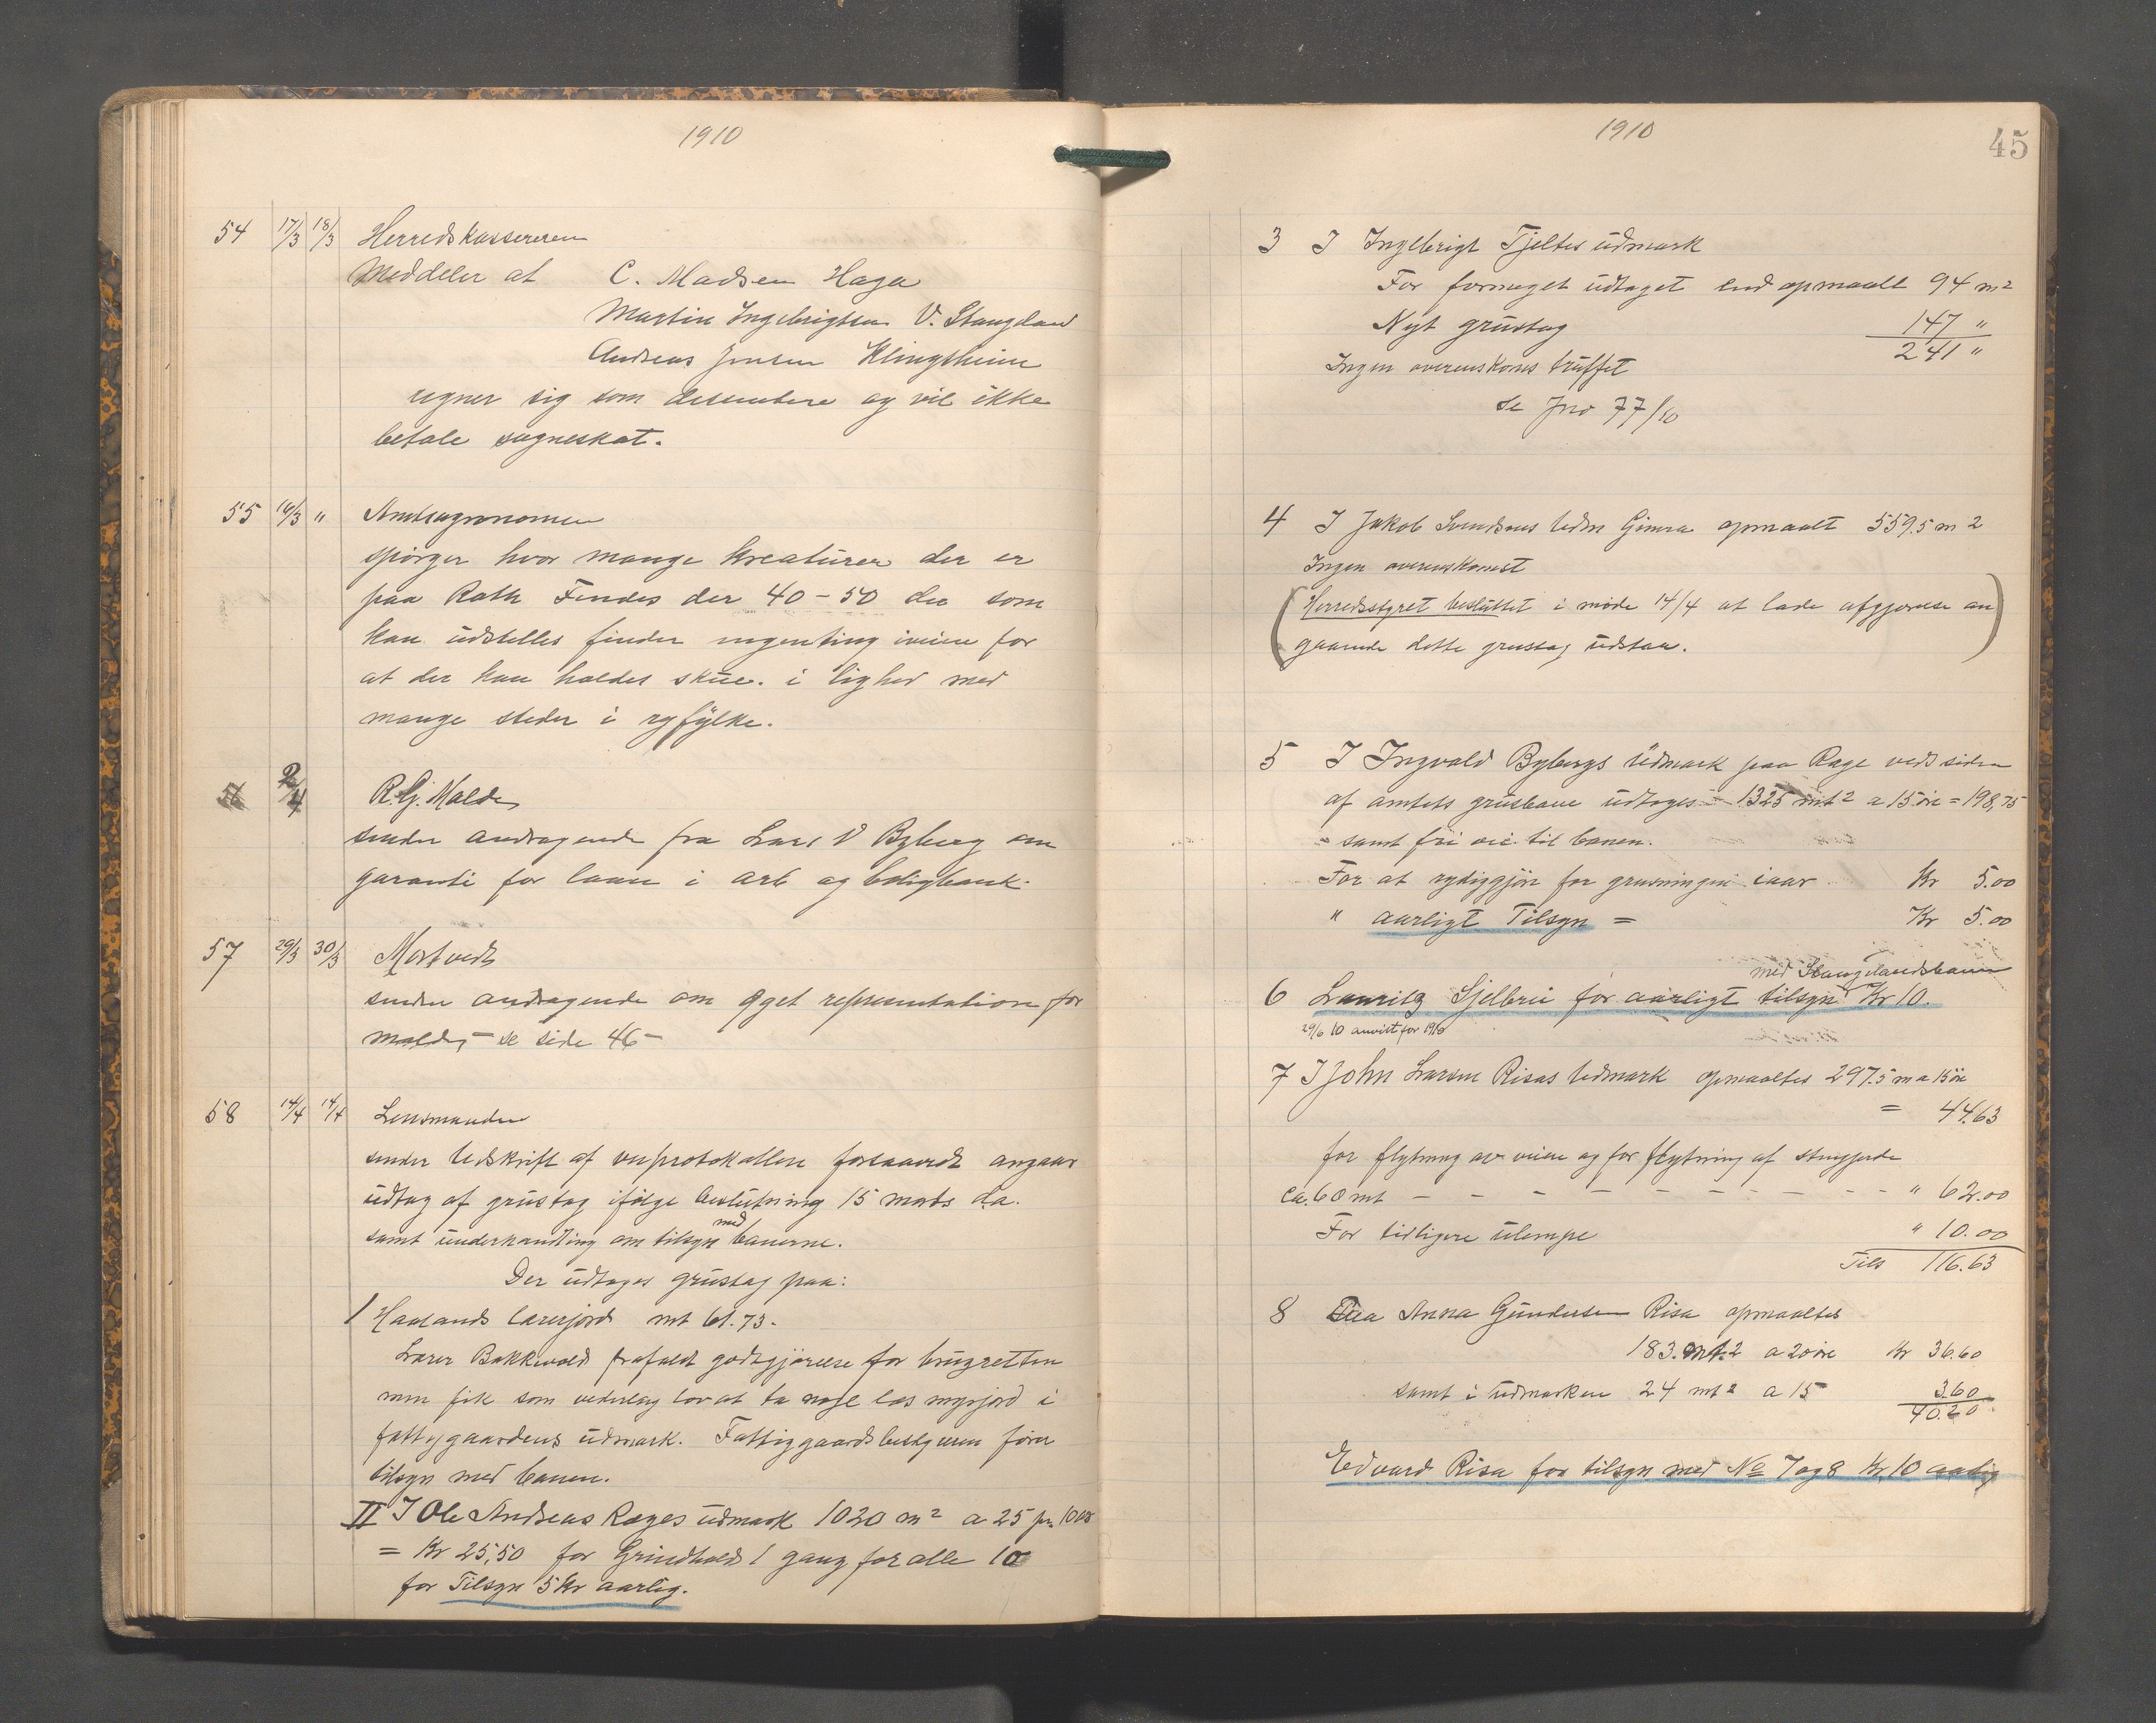 1910
54 17/3 18/3 Herredskassereren
Meddeler at C. Madsen Haga
Martin Ingebrigtsen V. Stangeland
Andreas Jonsen Klingsheim
regner sig som dissentere og vil ikke
betale sogneskat.
55 16/3 " Amtsagronomen
spörger hvor mange kreaturer der er
paa Rath Findes der 40-50 dee som
kan udstilles finder ingenting iveien for
at der kan holdes skue. i lighed med
mange steder i ryfylke.
56 2/4 R.G. Malde
sender andragende fra Lars V Byberg om
garanti for laan i arb og boligbank.
57 29/3 30/3 Mortvedt
sender andragende om eget repræsentation for
malde, - se side 46-
58 14/4 14/4 Lensmanden
sender Udskrift af veiprotokollen forsaavidt angaar
udtag af grustag ifölge beslutning 15 marts d.a.
samt underhandling om tilsyn med banerne.
Der udtages grustag paa:
1 Haalands lærerjord mt 61.73.
Lærer Bakkevold frafaldt godtgjörelse for brugsretten
men fik som vederlag lov at ta nogle læs myrjord i
fattiggaardens udmark. Fattiggaardsbestyreren förer
tilsyn med banen.
II I Ole Andreas Ræges udmark 1020 m2 a 25 pr. 1000
= Kr 25,50 for Grindhold 1 gang for alle 10
for Tilsyn 5 Kr aarlig.
1910
45
3 I Ingebrigt Tjeltes udmark
For formeget udtaget end opmaalt 94 m2
Nyt grustag 147 "
241 "
Ingen overenskoms truffet
se Jno 77/10
4 I Jakob Svendsens Udm Gimra opmaalt 559.5 m2
Ingen overenskomst
(Herredsstyret besluttet i möde 14/4 at lade afgjörelse an
gaaende dette grustag udstaa.)
5 I Ingvald Bybergs Udmark paa Rage ved siden
af amtets grusbane udtoges - 1325 mt2 a 15 öre = 198,75
- samt fri vei til banen.
For at rydiggjöre for grusningen iaar Kr 5.00
" aarligt Tilsyn = Kr 5.00
med Stangelandsbanen
6 Lauritz Sjelbrei for aarligt tilsyn Kr 10.
29/6 10 anvist for 1910
7 I John Larsen Risas Udmark opmaaltes 297.5 m a 15 öre
= 44.63
for flytning av veien og for flytning af stengjerde
ca. 60 mt - - - - - - - - - - " 62.00
For tidligere ulempe " 10.00
Tils 116.63
8 Paa Anna Gundersen Risa opmaaltes
183. mt.2 a 20 öre Kr 36.60
samt i Udmarken 24 mt2 a 15 3.60
40.20
Edvard Risa for tilsyn med No 7 og 8 Kr. 10 aarlig